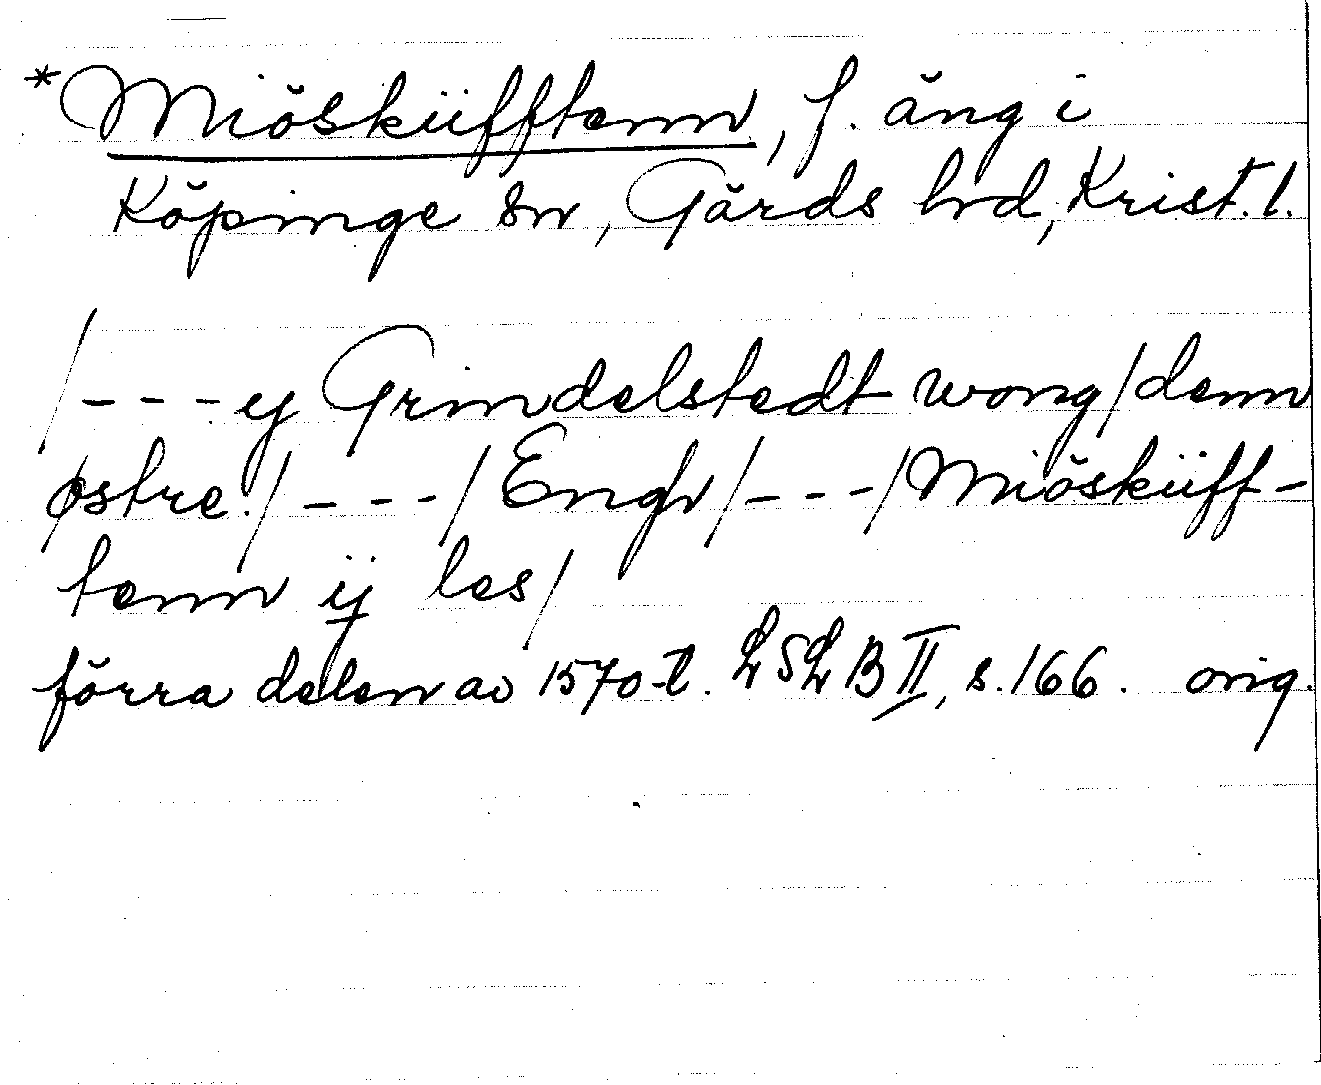 *Miöskiifftenn, f. äng i
Köpinge sn, Gärds hrd, Krist. l.
/---ij Grindelstedt wong/denn
østre./---/Engh/---/Miöskiiff-
tenn ij les/
förra delen av 1570-t. LSLB II, s. 166. orig.